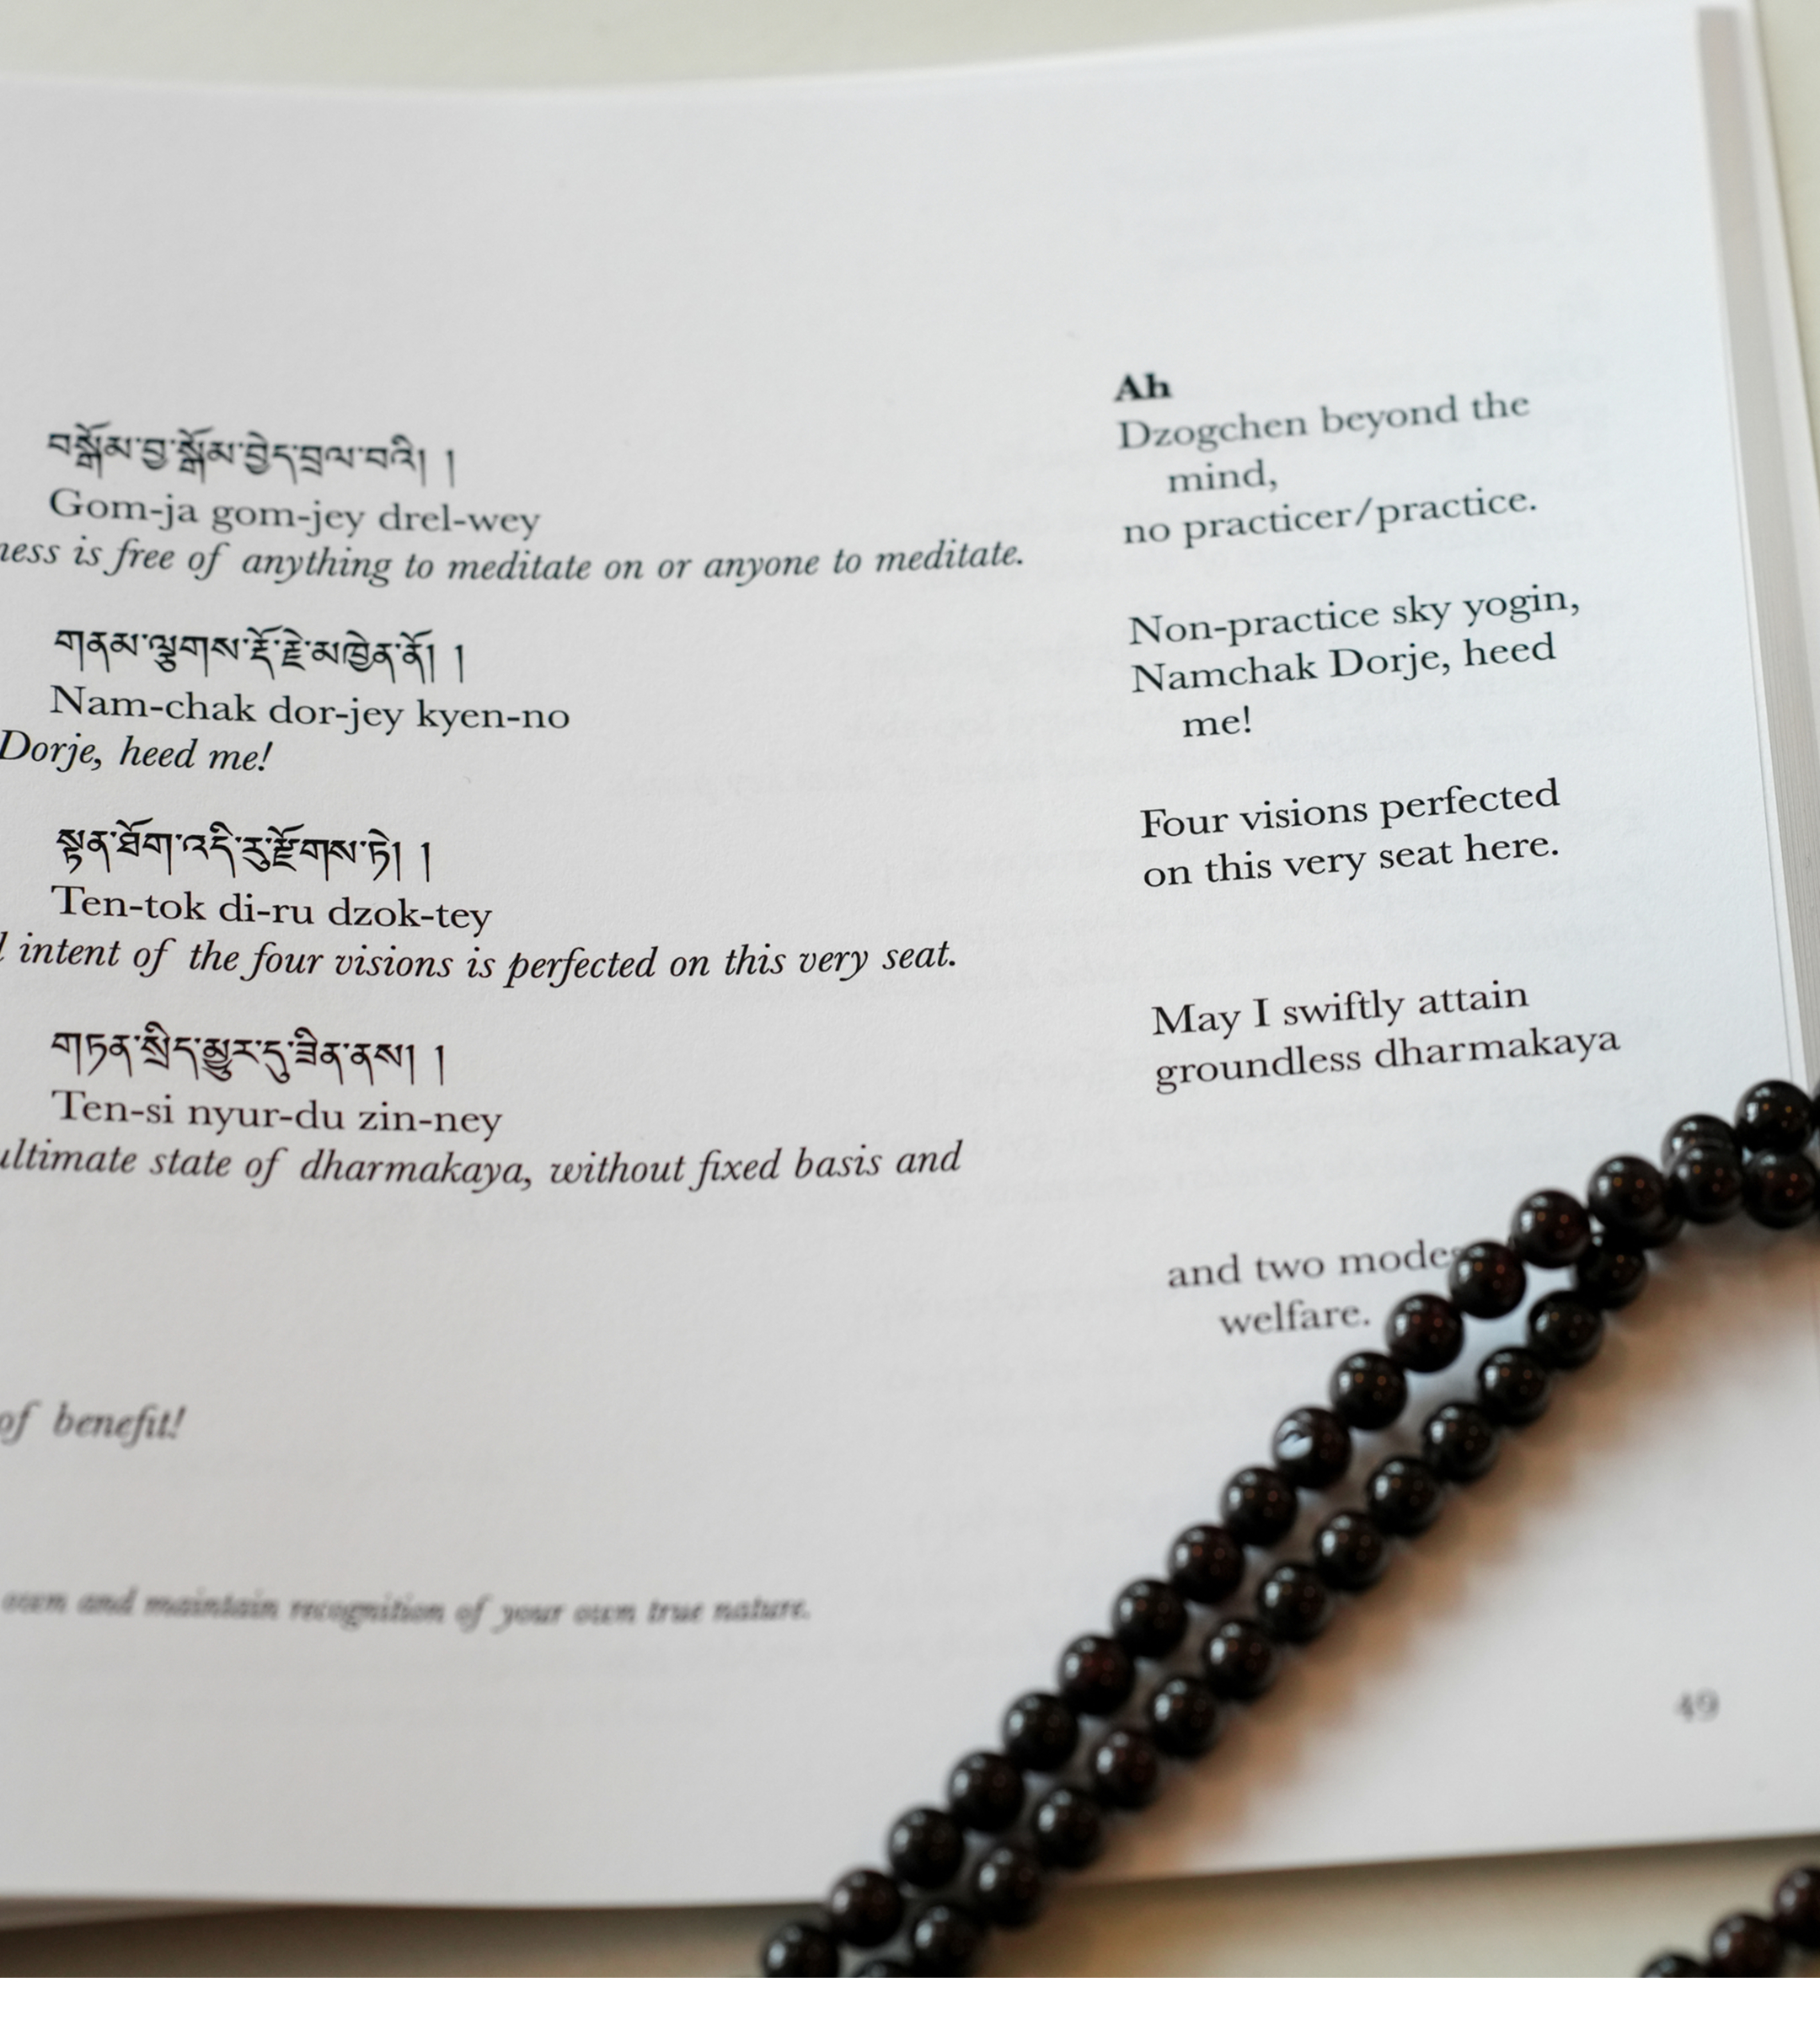 བསྒོམ་བྱ་སྒོམ་བྱེད་བྲལ་བའི། །
Gom-ja gom-jey drel-wey
ness is free of anything to meditate on or anyone to meditate.
གནམ་ལྕགས་རྡོ་རྗེ་མཁྱེན་ནོ། །
Nam-chak dor-jey kyen-no
Dorje, heed me!
སྟན་ཐོག་འདི་རུ་རྫོགས་ཏེ། །
Ten-tok di-ru dzok-tey
l intent of the four visions is perfected on this very seat.
གཏན་སྲིད་མྱུར་དུ་ཟིན་ནས། །
Ten-si nyur-du zin-ney
ultimate state of dharmakaya, without fixed basis and
of benefit!
own and maintain recognition of your own true nature.
Ah
Dzogchen beyond the
mind,
no practicer/practice.
Non-practice sky yogin,
Namchak Dorje, heed
me!
Four visions perfected
on this very seat here.
May I swiftly attain
groundless dharmakaya
and two modes
welfare.
49